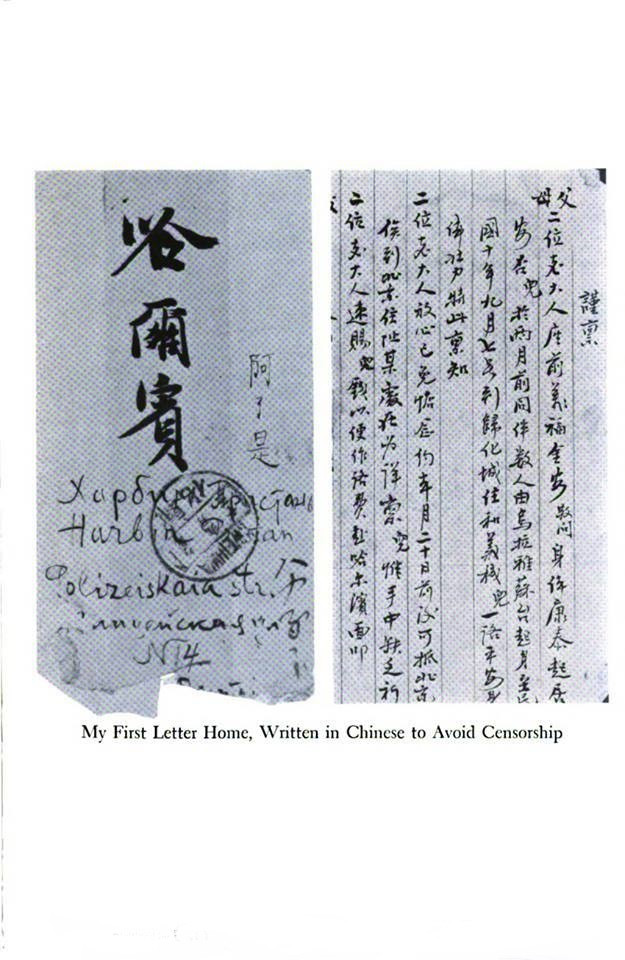 哈爾賓
阿了是
Харбин Пристань
Harbin
Polizeiskaia str.
№ 14
謹稟
父母二位老大人座前萬福金安敬問身体康泰起居
安吾兒於兩月前同伴數人由烏拉雅蘇台起身至民
國十年九月七号到歸化城住和義棧兒一路平安
特此稟知
二位老大人放心已免惦念約本月二十日前後可抵北京
俟到北京住址某處在为詳稟兒惟手中缺乏祈
二位老大人速賜兒錢以便作路費赴哈尔濱面叩
My First Letter Home, Written in Chinese to Avoid Censorship